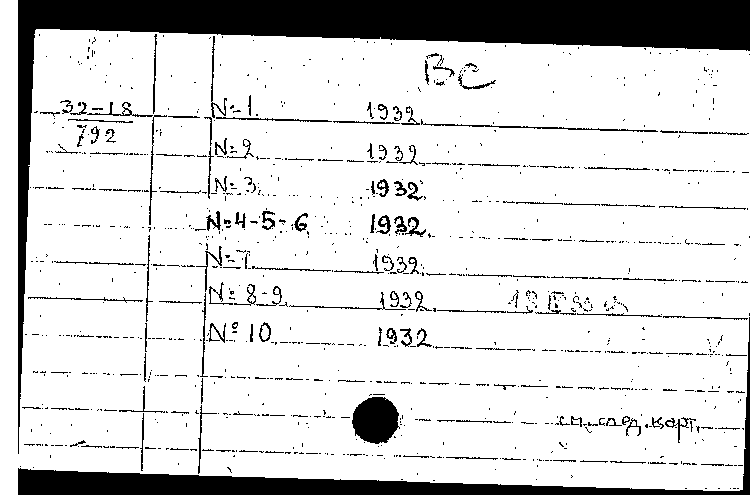 ВС
32-18
792
N=1. 1932.
N=2. 1932
N=3. 1932.
N=4-5-6 1932.
N=7. 1932.
N=8-9. 1932.
Nº10 1932
см. след. карт.